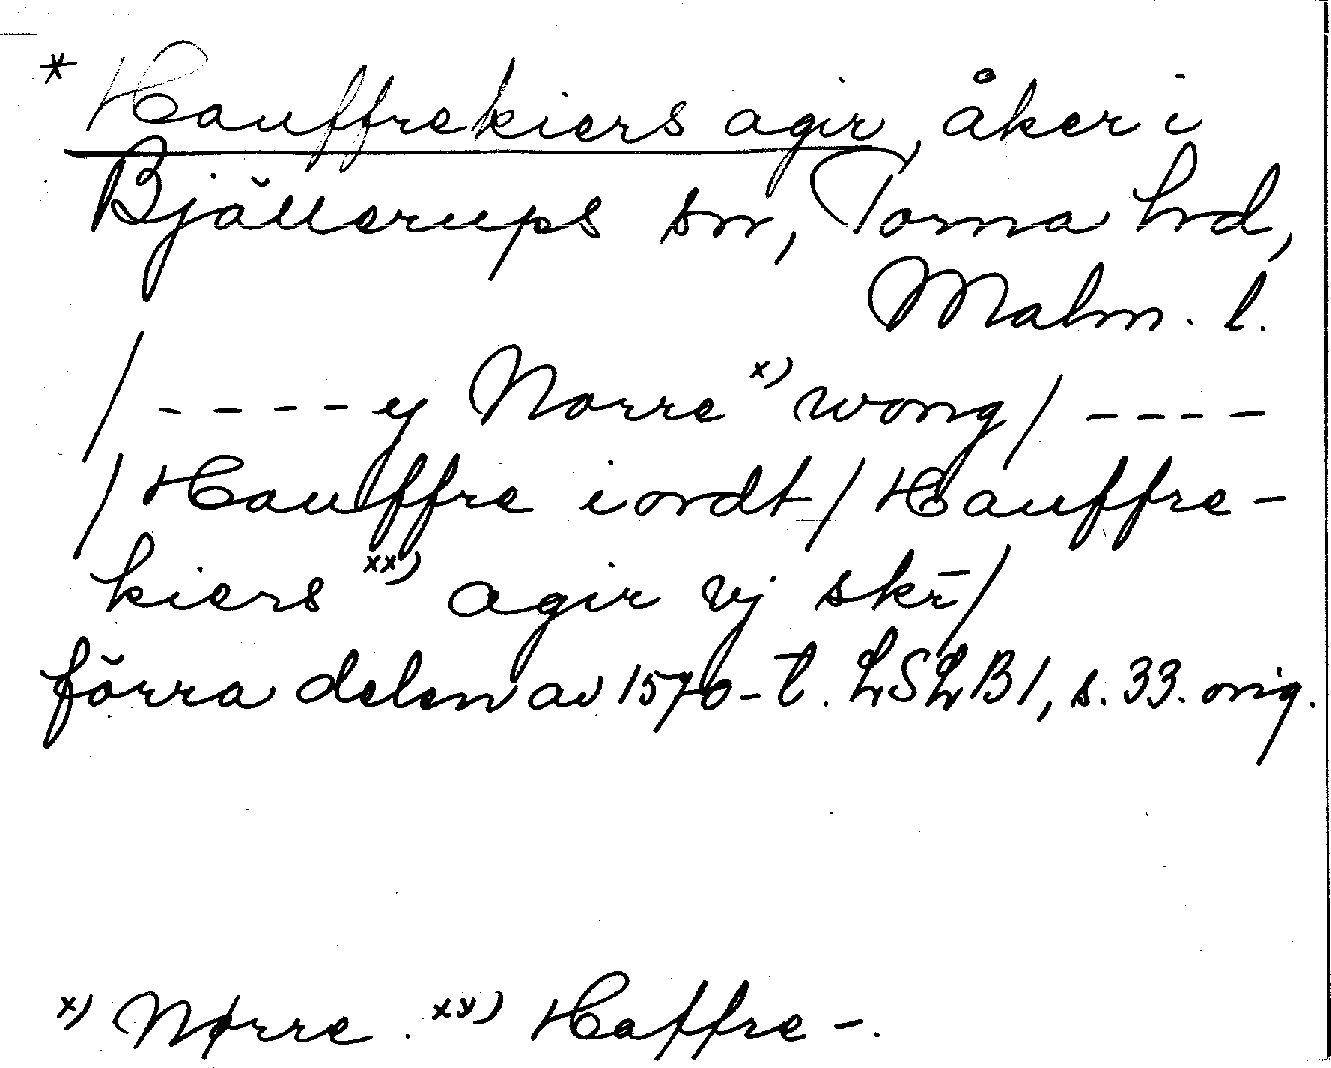 * Hauffrekiers agir, åker i
Bjällerups sn, Torna hd,
Malm. l.
/ - - - - y Norre x) wong / - - - -
/ Hauffre iordt / Hauffre-
kiers xx) agir vj skr̄ /
förra delen av 1570-t. LSLB1, s. 33. orig.
x) Nørre. xx) Haffre-.